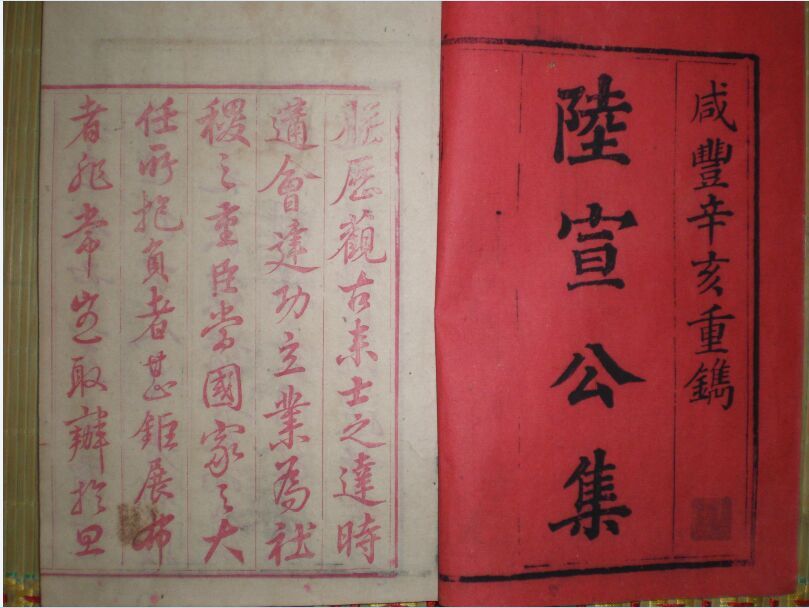 咸豐辛亥重鐫
陸宣公集
朕歷觀古来士之達時
遘會建功立業為社
稷之重臣當國家之大
任所抱負者甚鉅展布
者非常豈取辦於旦